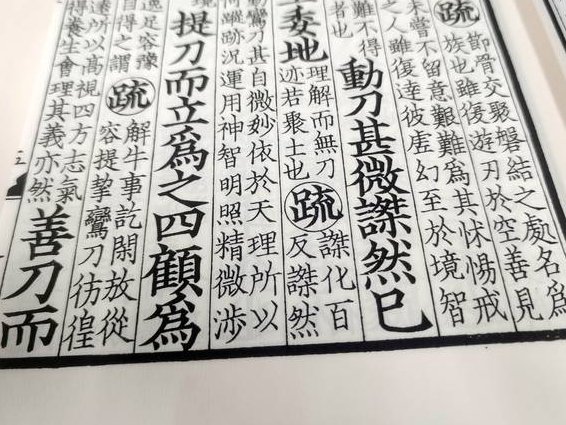 疏
節骨交聚磐結之處名為
族也雖復遊刃於空善見
未嘗不留意艱難為其怵惕戒
之人雖復達彼虛幻至於境智
難不得
者也
動刀甚微謋然已
委地
理解而無刀
迹若聚土也
疏
謋化百
反謋然
動鸞刀甚自微妙依於天理所以
何躧跡況運用神智明照精微涉
提刀而立為之四顧為
逸足容豫
自得之謂
疏
解牛事訖閑放從
容提挈鸞刀彷徨
遠所以高視四方志氣
得養生會理其義亦然
善刀而